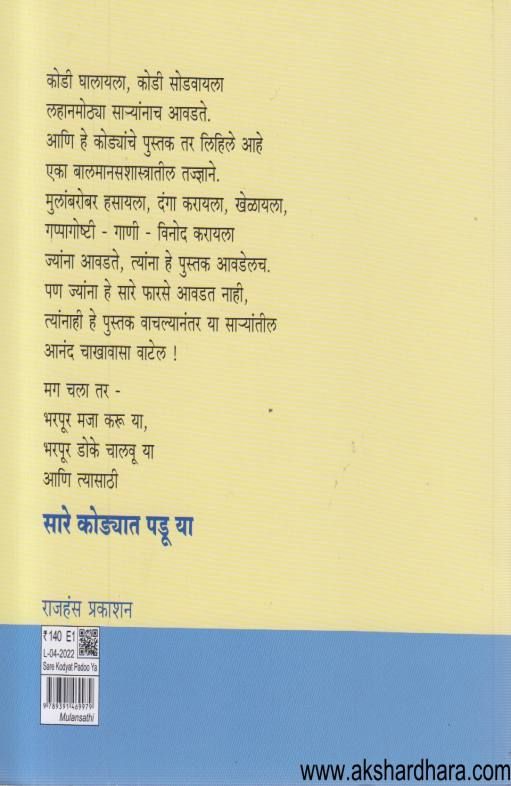 कोडी घालायला, कोडी सोडवायला
लहानमोठ्या साऱ्यांनाच आवडते.
आणि हे कोड्यांचे पुस्तक तर लिहिले आहे
एका बालमानसशास्त्रातील तज्ज्ञाने.
मुलांबरोबर हसायला, दंगा करायला, खेळायला,
गप्पागोष्टी - गाणी - विनोद करायला
ज्यांना आवडते, त्यांना हे पुस्तक आवडेलच.
पण ज्यांना हे सारे फारसे आवडत नाही,
त्यांनाही हे पुस्तक वाचल्यानंतर या साऱ्यांतील
आनंद चाखावासा वाटेल !
मग चला तर -
भरपूर मजा करू या,
भरपूर डोके चालवू या
आणि त्यासाठी
सारे कोड्यात पडू या
राजहंस प्रकाशन
₹140 E1
L-04-2022
Sare Kodyat Padoo Ya
9789391469979
Mulansathi
www.akshardhara.com